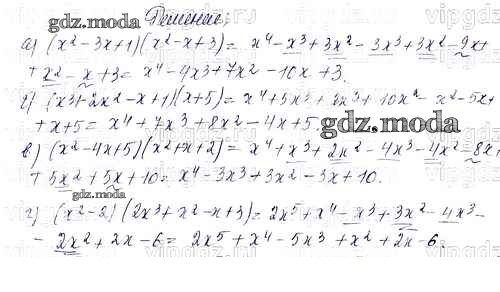 gdz.moda Решение:
а) (x² - 3x + 1)(x² - x + 3) = x⁴ - x³ + 3x² - 3x³ + 3x² - 9x +
+ x² - x + 3 = x⁴ - 4x³ + 7x² - 10x + 3.
б) (x³ + 2x² - x + 1)(x + 5) = x⁴ + 5x³ + 2x³ + 10x² - x² - 5x +
+ x + 5 = x⁴ + 7x³ + 8x² - 4x + 5.
gdz.moda
в) (x² - 4x + 5)(x² + x + 2) = x⁴ + x³ + 2x² - 4x³ - 4x² - 8x +
+ 5x² + 5x + 10 = x⁴ - 3x³ + 3x² - 3x + 10.
gdz.moda
г) (x² - 2)(2x³ + x² - x + 3) = 2x⁵ + x⁴ - x³ + 3x² - 4x³ -
- 2x² + 2x - 6 = 2x⁵ + x⁴ - 5x³ + x² + 2x - 6.